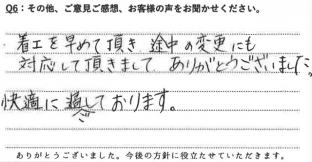 Q6：その他、ご意見ご感想、お客様の声をお聞かせください。
着工を早めて頂き、途中の変更にも
対応して頂きまして ありがとうございました。
快適に過ごしております。
ありがとうございました。今後の方針に役立たせていただきます。